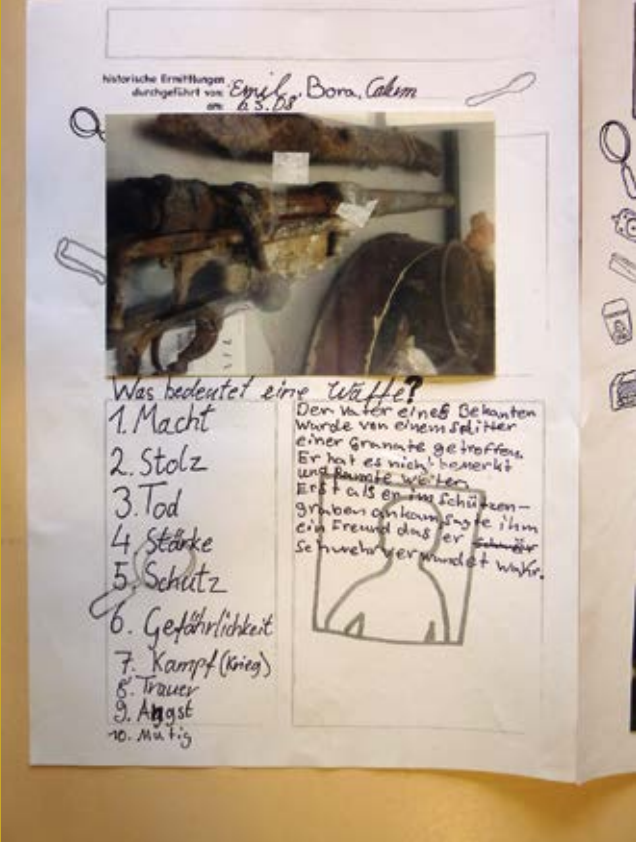 historische Ermittlungen
durchgeführt von: Emil, Bora, Calem
am: 6.3.08
Was bedeutet eine Waffe?
1. Macht
2. Stolz
3. Tod
4. Stärke
5. Schutz
6. Gefährlichkeit
7. Kampf (Krieg)
8. Trauer
9. Angst
10. Mutig
Der Vater eines Bekanten
wurde von einem splitter
einer Granate getroffen.
Er hat es nicht bemerkt
und Rannte weiter.
Erst als er im Schützen-
graben ankam sagte ihm
ein Freund das er
schwehr verwundet wahr.